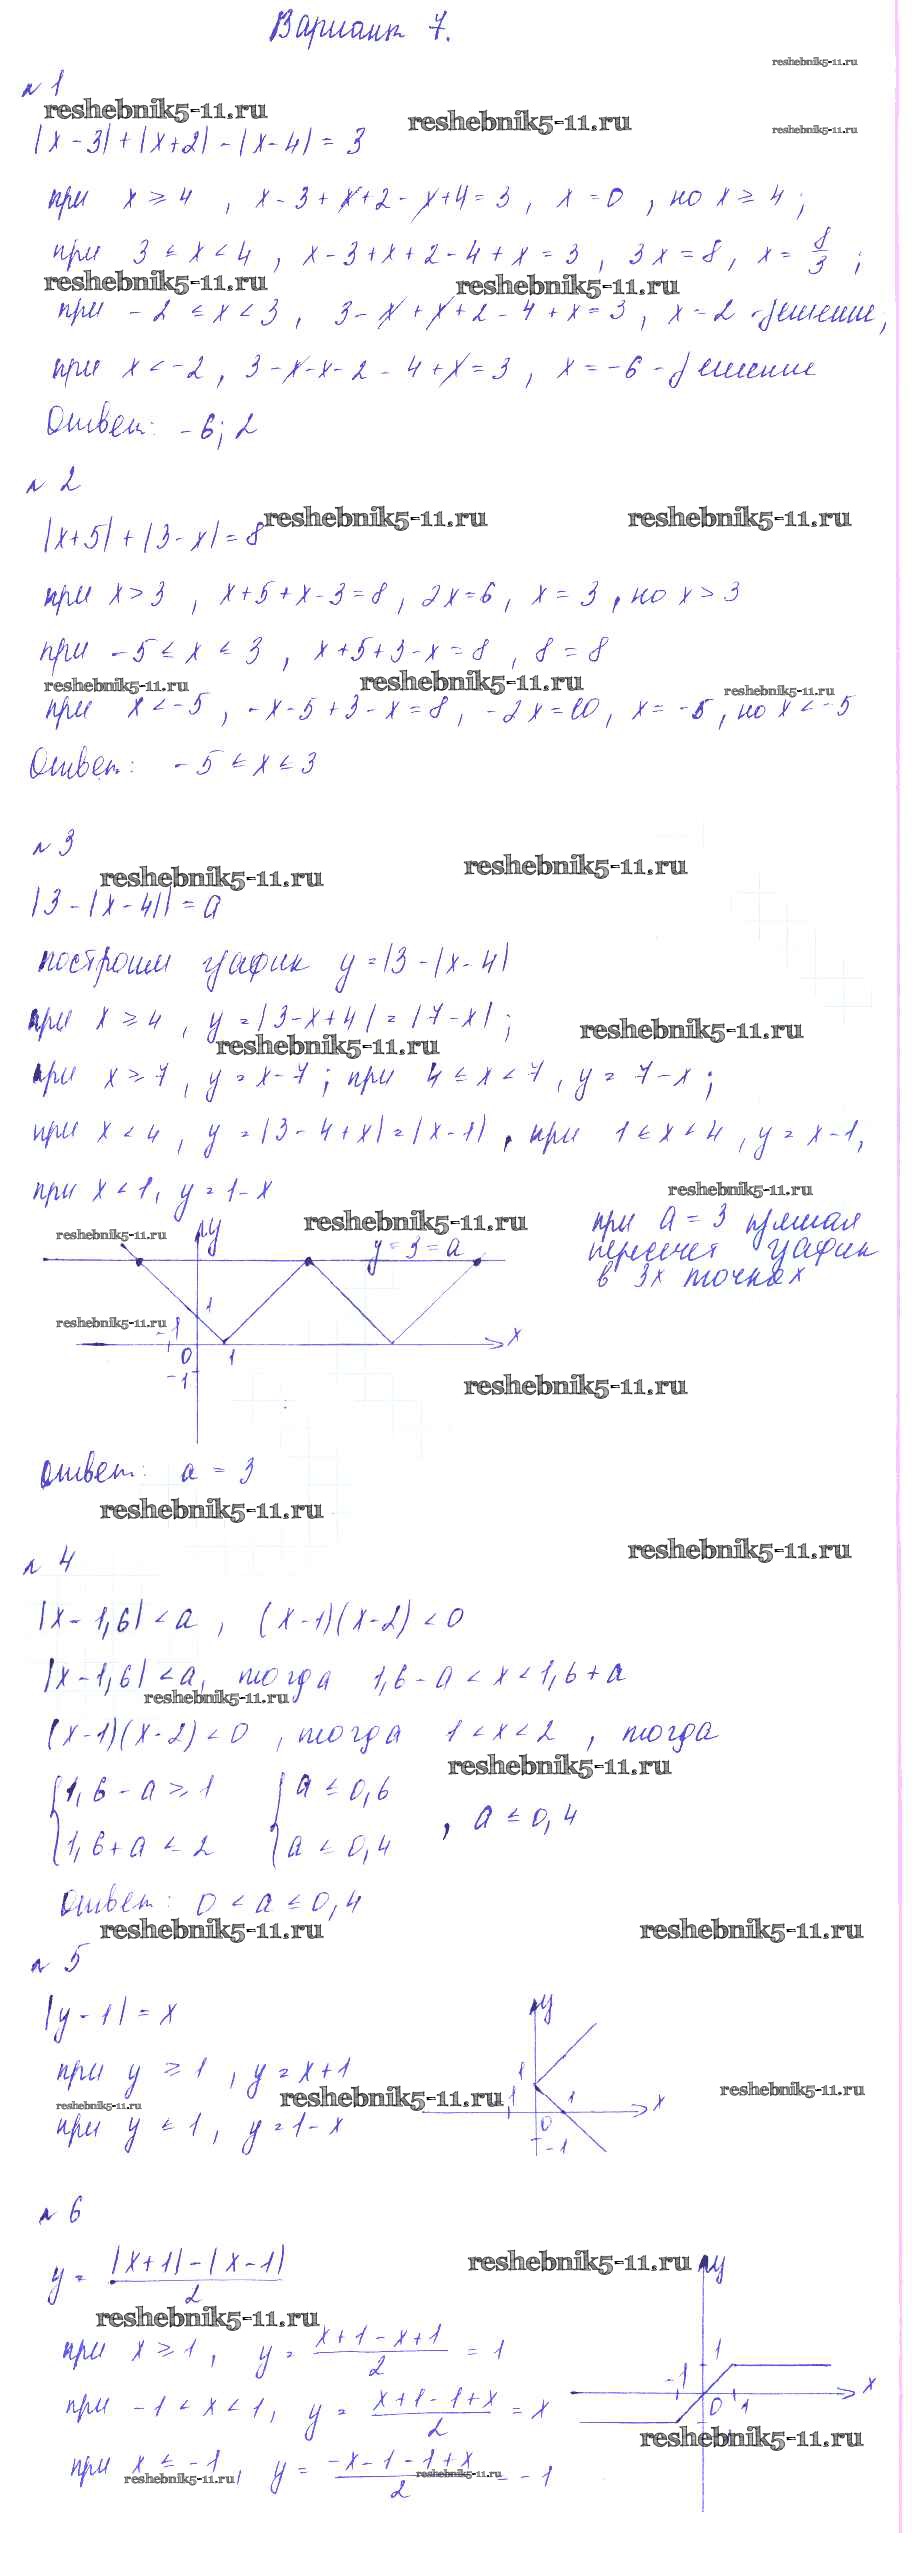 Вариант 7.
reshebnik5-11.ru
№ 1
reshebnik5-11.ru reshebnik5-11.ru reshebnik5-11.ru
|x - 3| + |x + 2| - |x - 4| = 3
при x ≥ 4 , x - 3 + x + 2 - x + 4 = 3 , x = 0 , но x ≥ 4 ;
при 3 ≤ x < 4 , x - 3 + x + 2 - 4 + x = 3 , 3x = 8 , x = 8/3 ;
reshebnik5-11.ru reshebnik5-11.ru
при -2 ≤ x < 3 , 3 - x + x + 2 - 4 + x = 3 , x = 2 - решение ;
при x < -2 , 3 - x - x - 2 - 4 + x = 3 , x = -6 - решение
Ответ: -6; 2
№ 2
reshebnik5-11.ru reshebnik5-11.ru
|x + 5| + |3 - x| = 8
при x > 3 , x + 5 + x - 3 = 8 , 2x = 6 , x = 3 , но x > 3
при -5 ≤ x ≤ 3 , x + 5 + 3 - x = 8 , 8 = 8
reshebnik5-11.ru reshebnik5-11.ru reshebnik5-11.ru
при x < -5 , -x - 5 + 3 - x = 8 , -2x = 10 , x = -5 , но x < -5
Ответ: -5 ≤ x ≤ 3
№ 3
reshebnik5-11.ru reshebnik5-11.ru
|3 - |x - 4|| = a
построим график y = |3 - |x - 4|
при x ≥ 4 , y = |3 - x + 4| = |7 - x| ;
reshebnik5-11.ru reshebnik5-11.ru
при x ≥ 7 , y = x - 7 ; при 4 ≤ x < 7 , y = 7 - x ;
при x < 4 , y = |3 - 4 + x| = |x - 1| , при 1 ≤ x < 4 , y = x - 1 ,
при x < 1 , y = 1 - x
reshebnik5-11.ru
reshebnik5-11.ru reshebnik5-11.ru
y
y = 3 = a
при a = 3 прямая
пересечет график
в 3х точках
reshebnik5-11.ru
1
-1
0
1
x
-1
reshebnik5-11.ru
Ответ: a = 3
reshebnik5-11.ru
reshebnik5-11.ru
№ 4
|x - 1,6| < a , (x - 1)(x - 2) < 0
|x - 1,6| < a , тогда 1,6 - a < x < 1,6 + a
reshebnik5-11.ru
(x - 1)(x - 2) < 0 , тогда 1 < x < 2 , тогда
reshebnik5-11.ru
1,6 - a ≥ 1 a ≤ 0,6
1,6 + a ≤ 2 a ≤ 0,4 , a ≤ 0,4
Ответ: 0 < a ≤ 0,4
reshebnik5-11.ru reshebnik5-11.ru
№ 5
|y - 1| = x
y
при y ≥ 1 , y = x + 1
1
reshebnik5-11.ru reshebnik5-11.ru reshebnik5-11.ru
1
1
x
0
при y ≤ 1 , y = 1 - x
-1
№ 6
y = |x + 1| - |x - 1| / 2
reshebnik5-11.ru
y
reshebnik5-11.ru
при x ≥ 1 , y = x + 1 - x + 1 / 2 = 1
1
-1
x
0
1
при -1 < x < 1 , y = x + 1 - 1 + x / 2 = x
reshebnik5-11.ru
при x ≤ -1 , y = -x - 1 - 1 + x / 2 = -1
reshebnik5-11.ru reshebnik5-11.ru